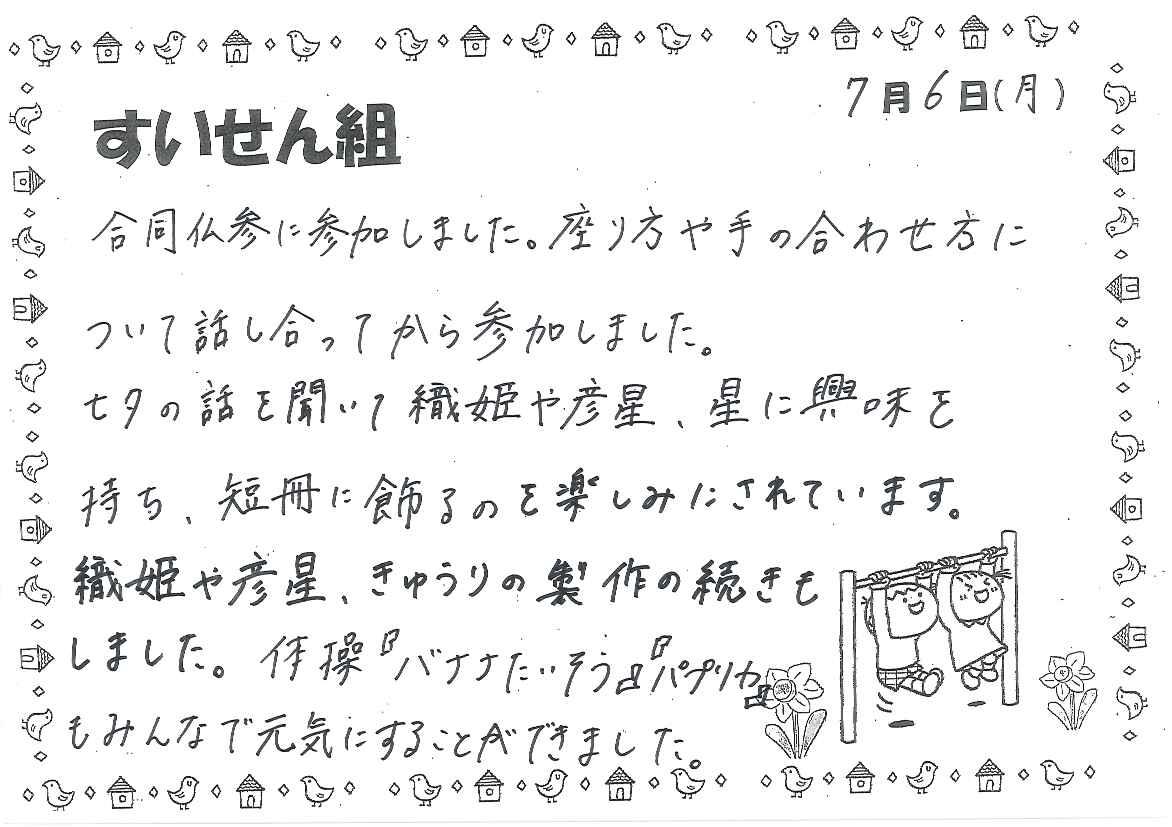 7月6日(月)
すいせん組
合同仏参に参加しました。座り方や手の合わせ方に
ついて話し合ってから参加しました。
七夕の話を聞いて織姫や彦星、星に興味を
持ち、短冊に飾るのを楽しみにされています。
織姫や彦星、きゅうりの製作の続きも
しました。体操『バナナたいそう』『パプリカ』
もみんなで元気にすることができました。